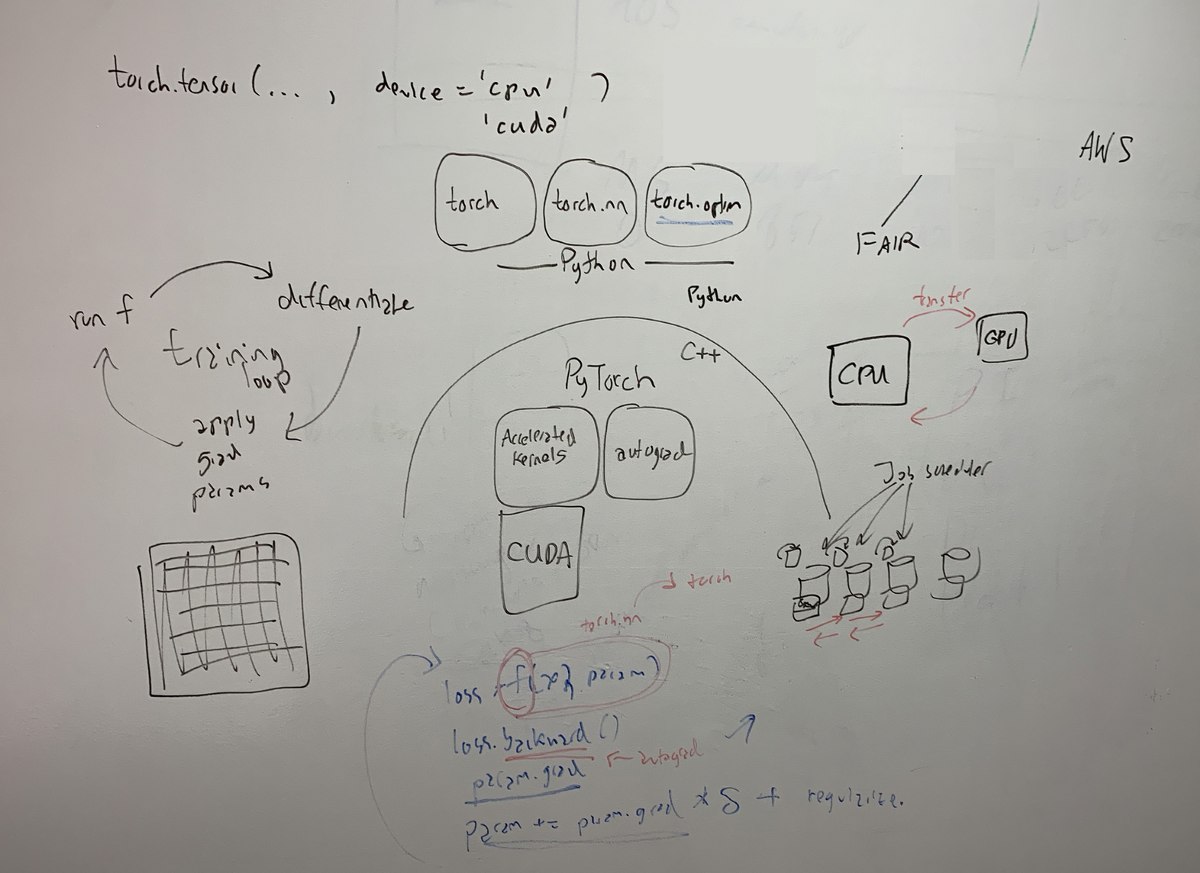 torch.tensor (... , device = 'cpu' )
'cuda'
AWS
torch
torch.nn
torch.optim
Python
FAIR
Python
run f
differentiate
training
loop
apply
grad
params
C++
PyTorch
Accelerated
kernels
autograd
CUDA
transfer
CPU
GPU
Job
torch
torch.nn
loss = f(x, param)
loss.backward()
autograd
param.grad
param += param.grad * δ +